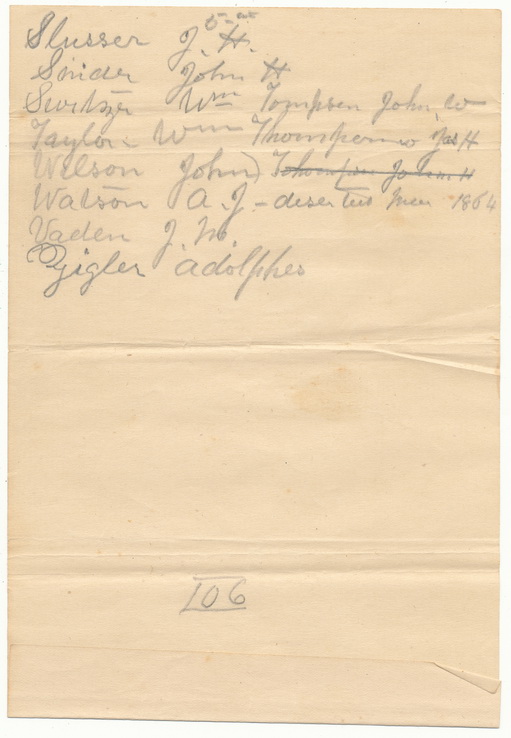 Slusser J. H.
Snider John H
Switzer Wm Tompsen John W
Taylor Wm Thompson Jas H
Wilson John Thompson John H
Watson A. J - deserted 1864
Vaden J. W.
Zigler Adolphes
106